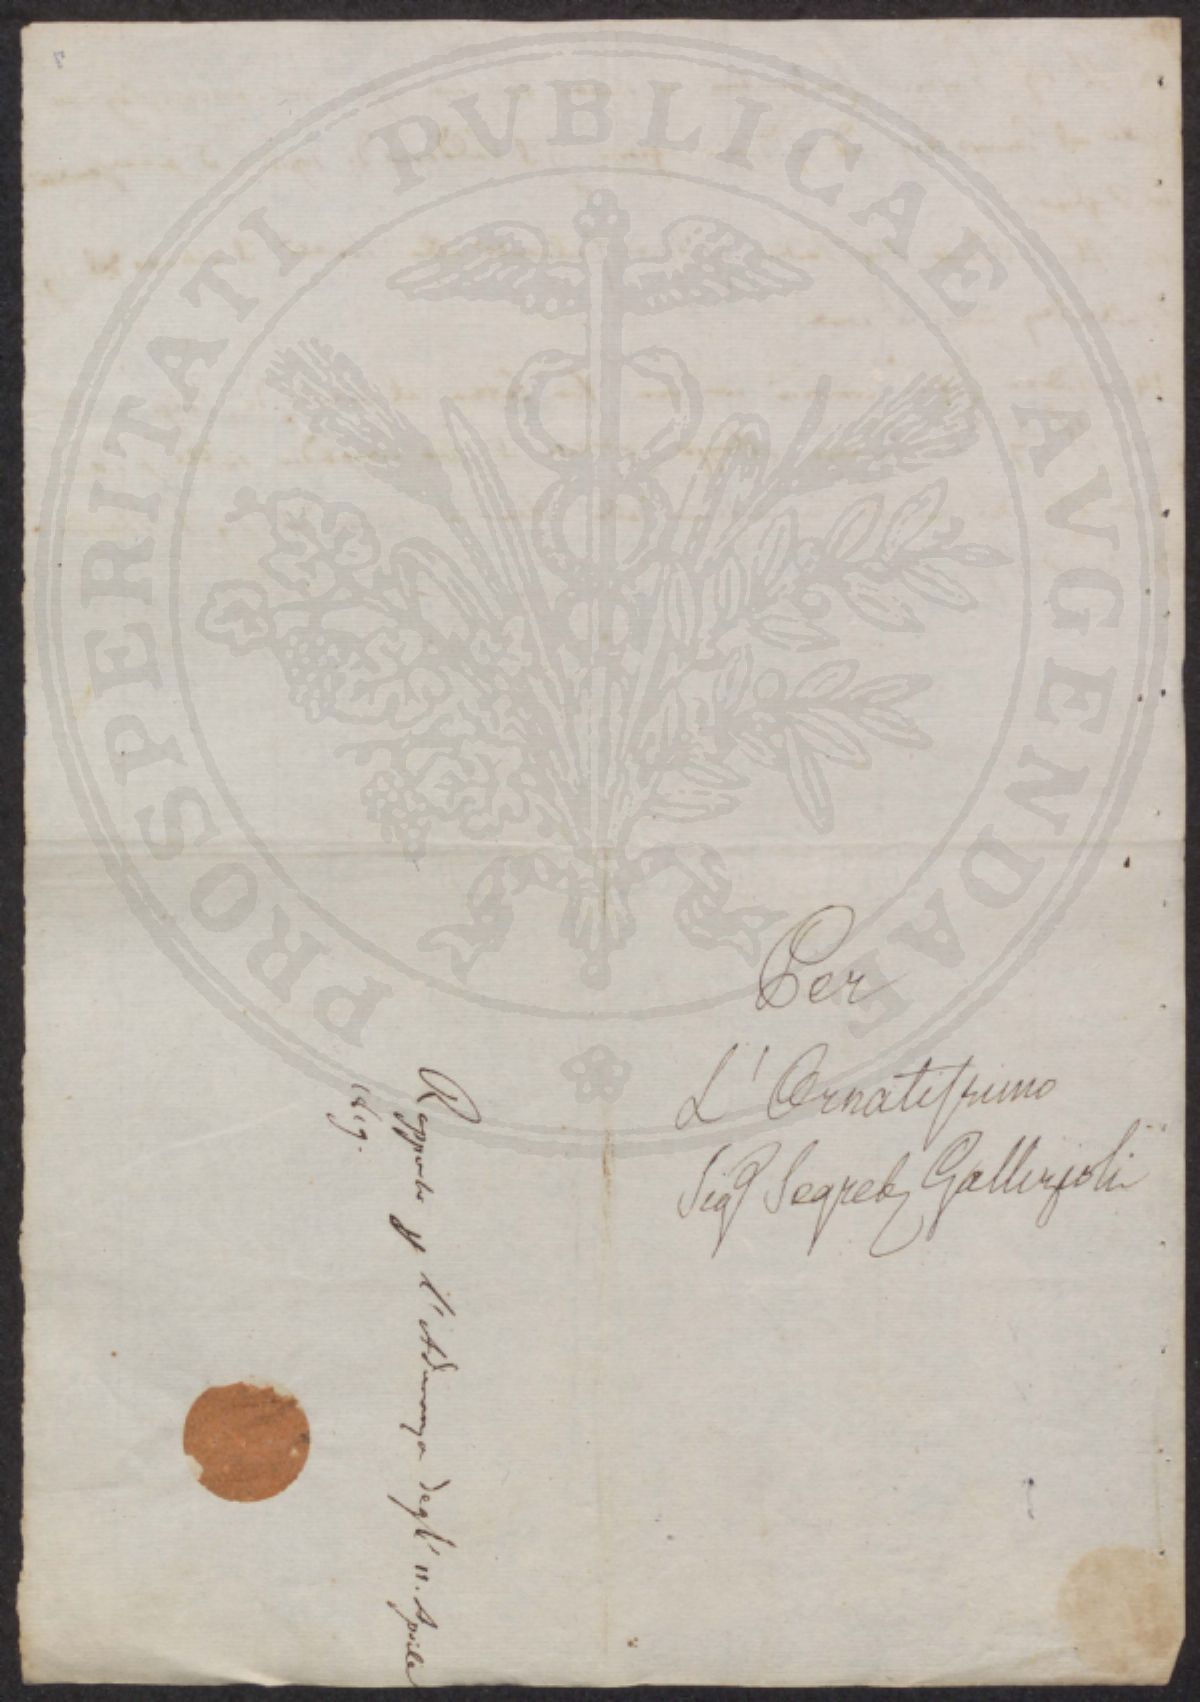 PROSPERITATI PUBLICAE AUGENDAE
Per
L' Ornatissimo
Sigr Segret Gallizioli
Rapporto pr l'Adunanza degl' 11. Aprile
1819.